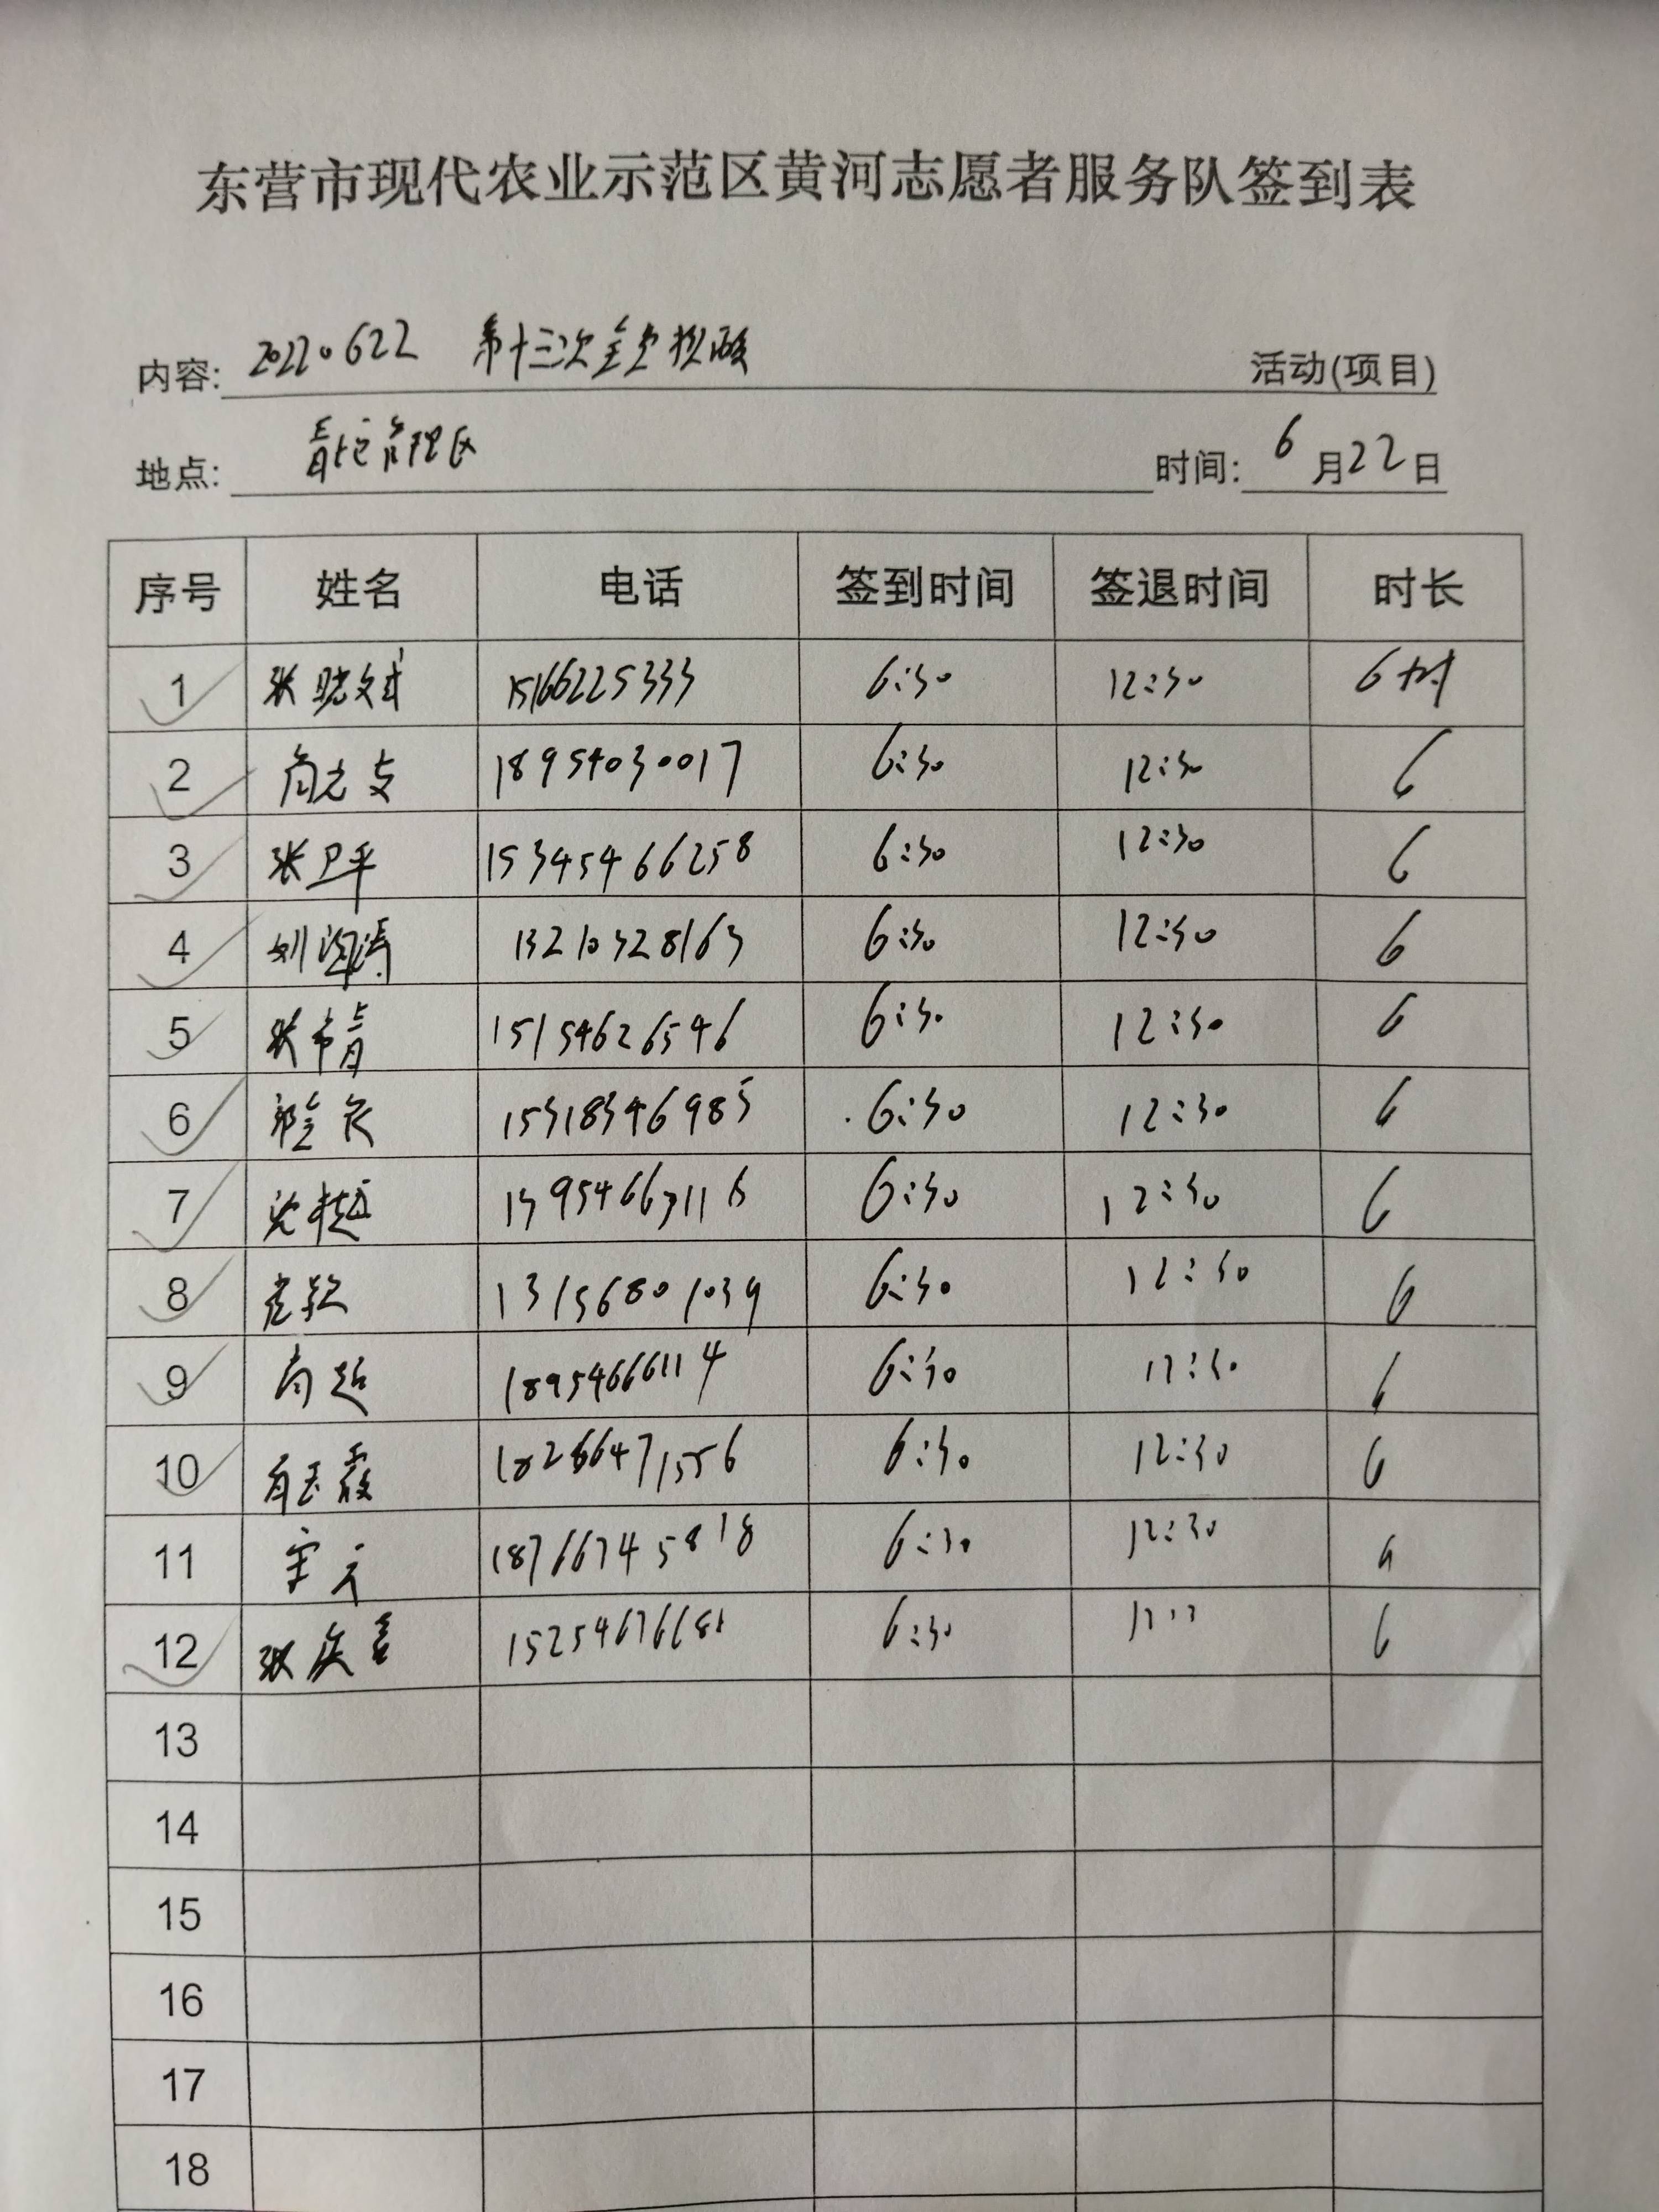 东营市现代农业示范区黄河志愿者服务队签到表
内容: 20220622 第十三次全员核酸 活动(项目)
地点: 管理区 时间: 6月22日
序号 姓名 电话 签到时间 签退时间 时长
1 张晓文 15166225333 6:30 12:30 6时
2 18954030017 6:30 12:30 6
3 张卫平 15345466258 6:30 12:30 6
4 刘 13210328163 6:30 12:30 6
5 张 15154626546 6:30 12:30 6
6 15318346983 6:30 12:30 6
7 沈越 6:30 12:30 6
8 13156801039 6:30 12:30 6
9 尚超 18954666114 6:30 12:30 6
10 6:30 12:30 6
11 18766745818 6:30 12:30 6
12 张庆 6:30 6
13
14
15
16
17
18